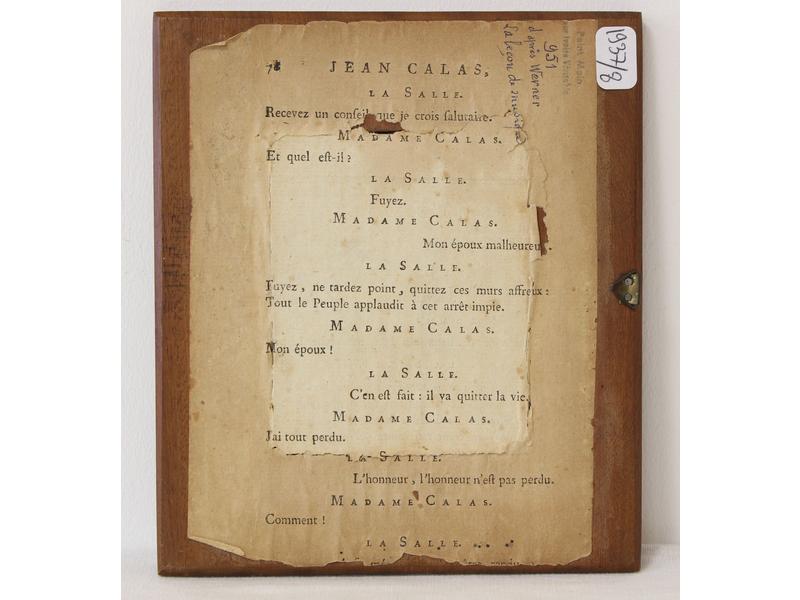 78 JEAN CALAS,
LA SALLE.
Recevez un conseil que je crois salutaire.
MADAME CALAS.
Et quel est-il ?
LA SALLE.
Fuyez.
MADAME CALAS.
Mon époux malheureu
LA SALLE.
Fuyez, ne tardez point, quittez ces murs affreux :
Tout le Peuple applaudit à cet arrêt impie.
MADAME CALAS.
Mon époux !
LA SALLE.
C'en est fait : il va quitter la vie.
MADAME CALAS.
J'ai tout perdu.
LA SALLE.
L'honneur, l'honneur n'est pas perdu.
MADAME CALAS.
Comment !
LA SALLE.
Peint Main
951
d'après Werner
La leçon de musique
1937/8